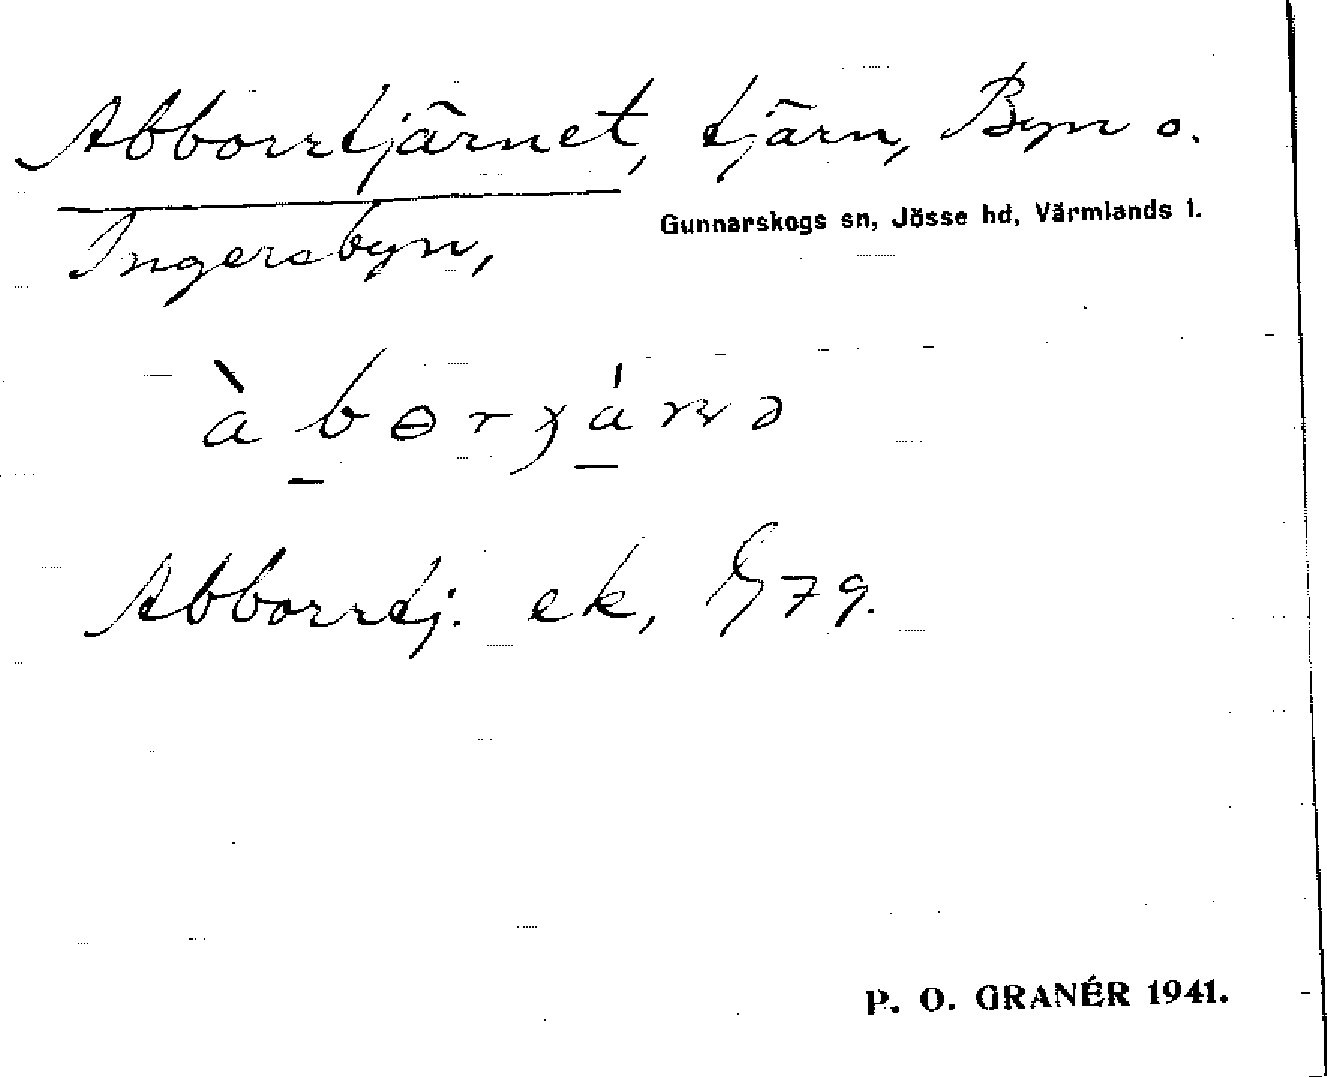 Abborrtjärnet, tjärn, Byn o.
Ingersbyn,
Gunnarskogs sn, Jösse hd, Värmlands l.
Abborrtj. ek,
P. O. GRANÉR 1941.